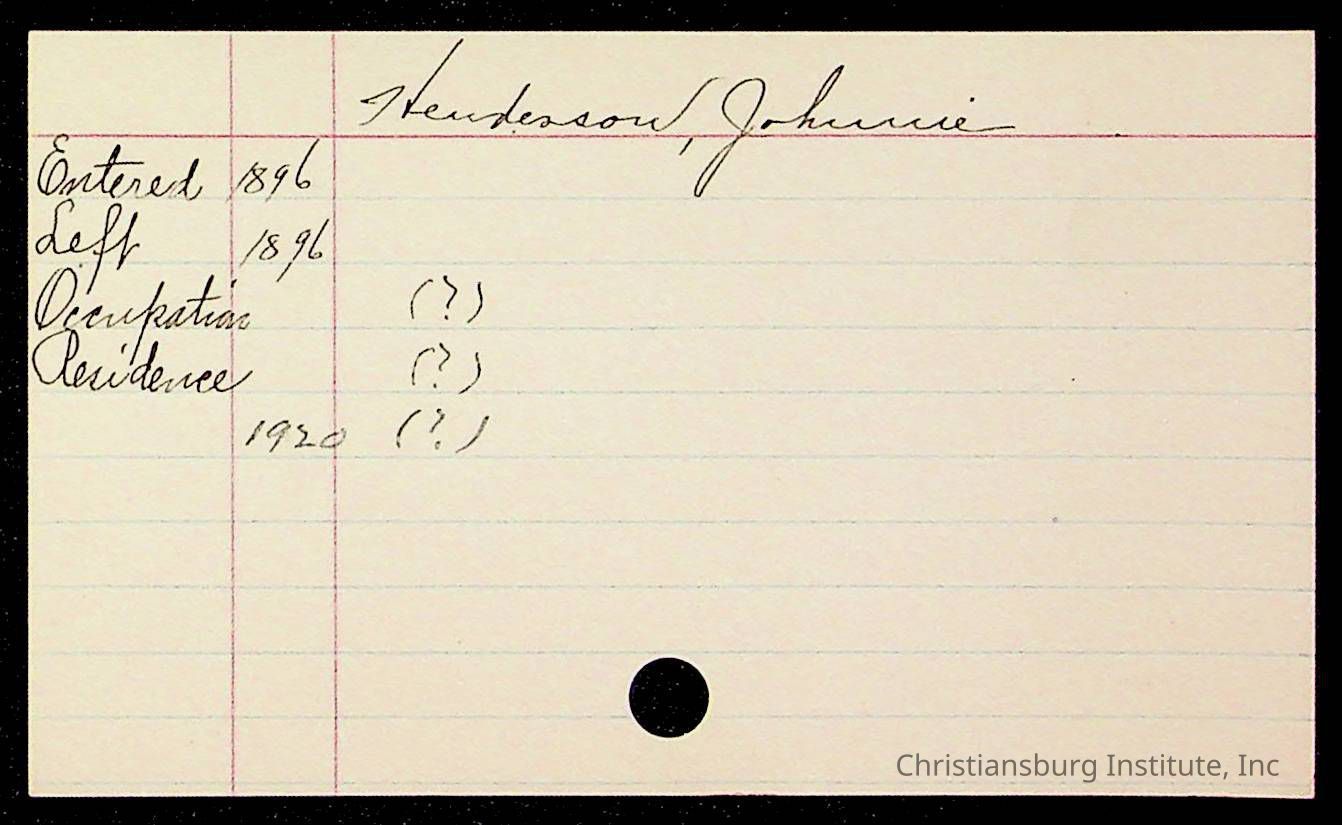 Henderson, Johnnie
Entered 1896
Left 1896
Occupation (?)
Residence (?)
1920 (?)
Christiansburg Institute, Inc